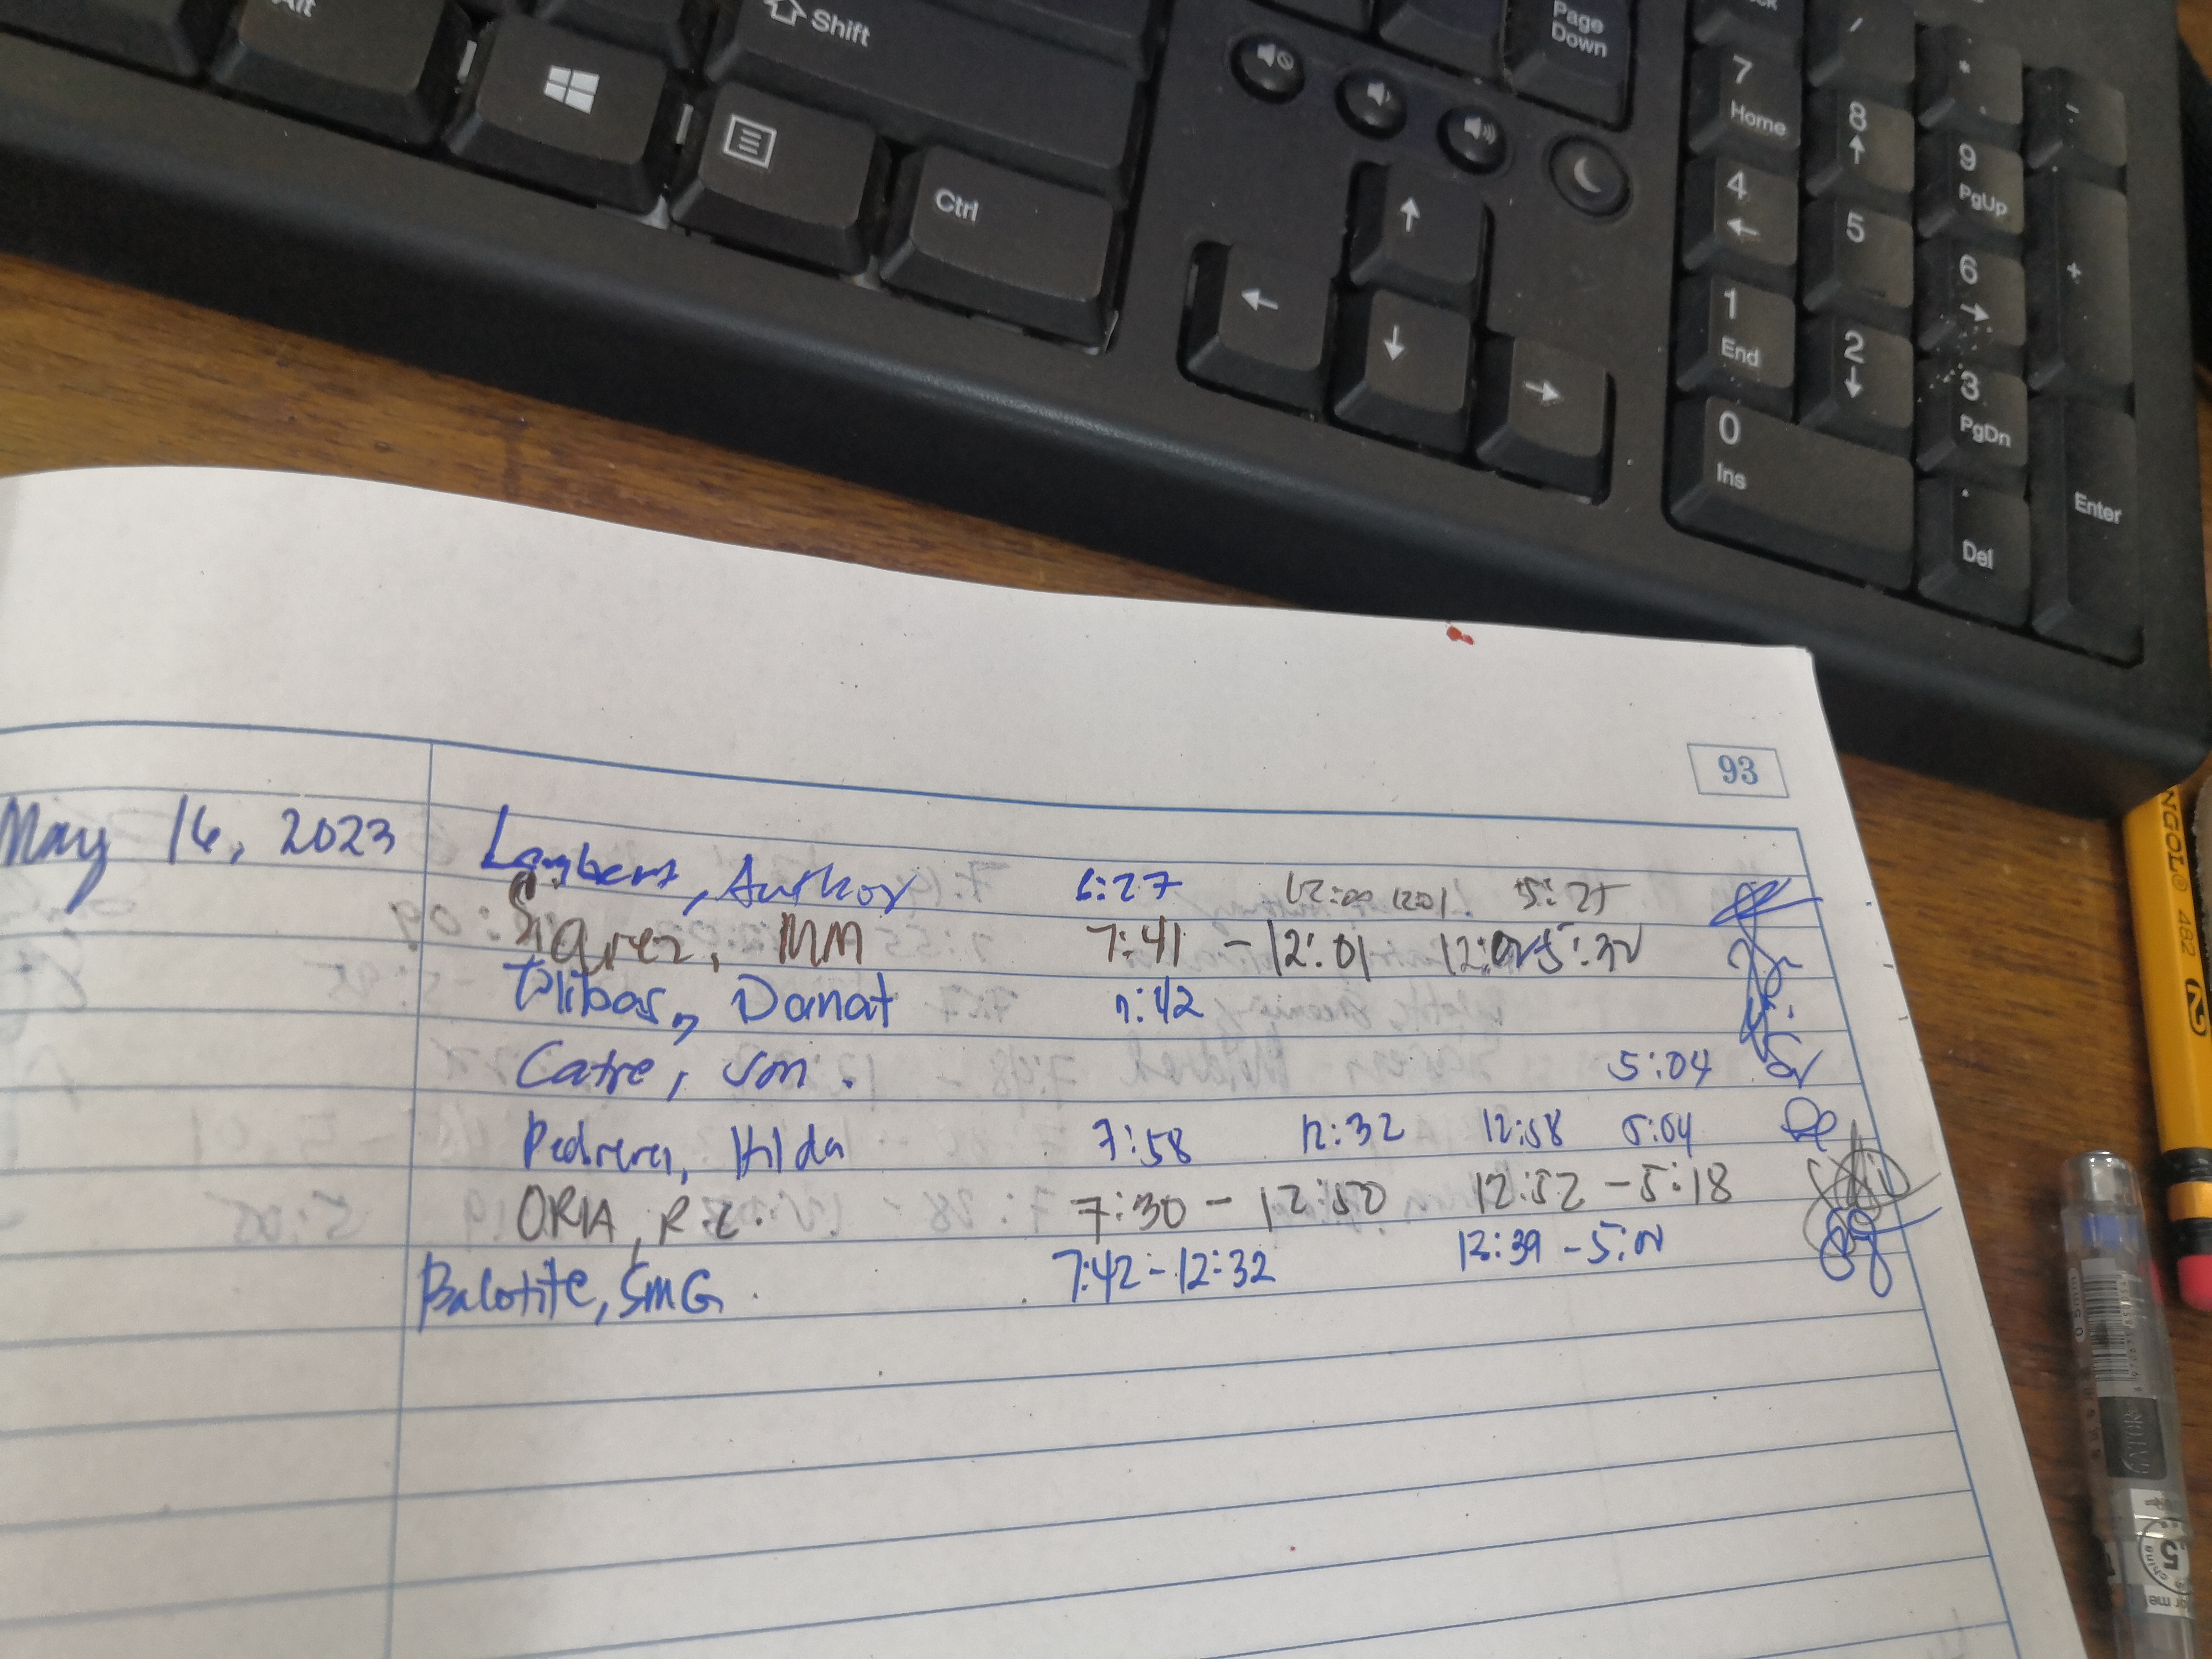 Alt
Shift
Page Down
Ctrl
7 Home
8
9 PgUp
4
5
6
+
1 End
2
3 PgDn
0 Ins
Del
Enter
93
May 16, 2023
Author 6:27 12:00 12:01 5:25
MM 7:41 - 12:01
Danat 7:42
Catre, Jon. 5:04
Pedrera, Hilda 7:58 12:32 12:58 5:04
ORIA, R.C. 7:30 - 12:50 12:52 - 5:18
Balotite, SMG 7:42 - 12:32 12:39
NGOL® 482 2
0.5mm